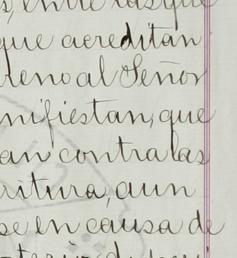 s, entre las que
que acreditan
reno al Señor
nifiestan, que
an contra las
ritura, aun
se en causa de